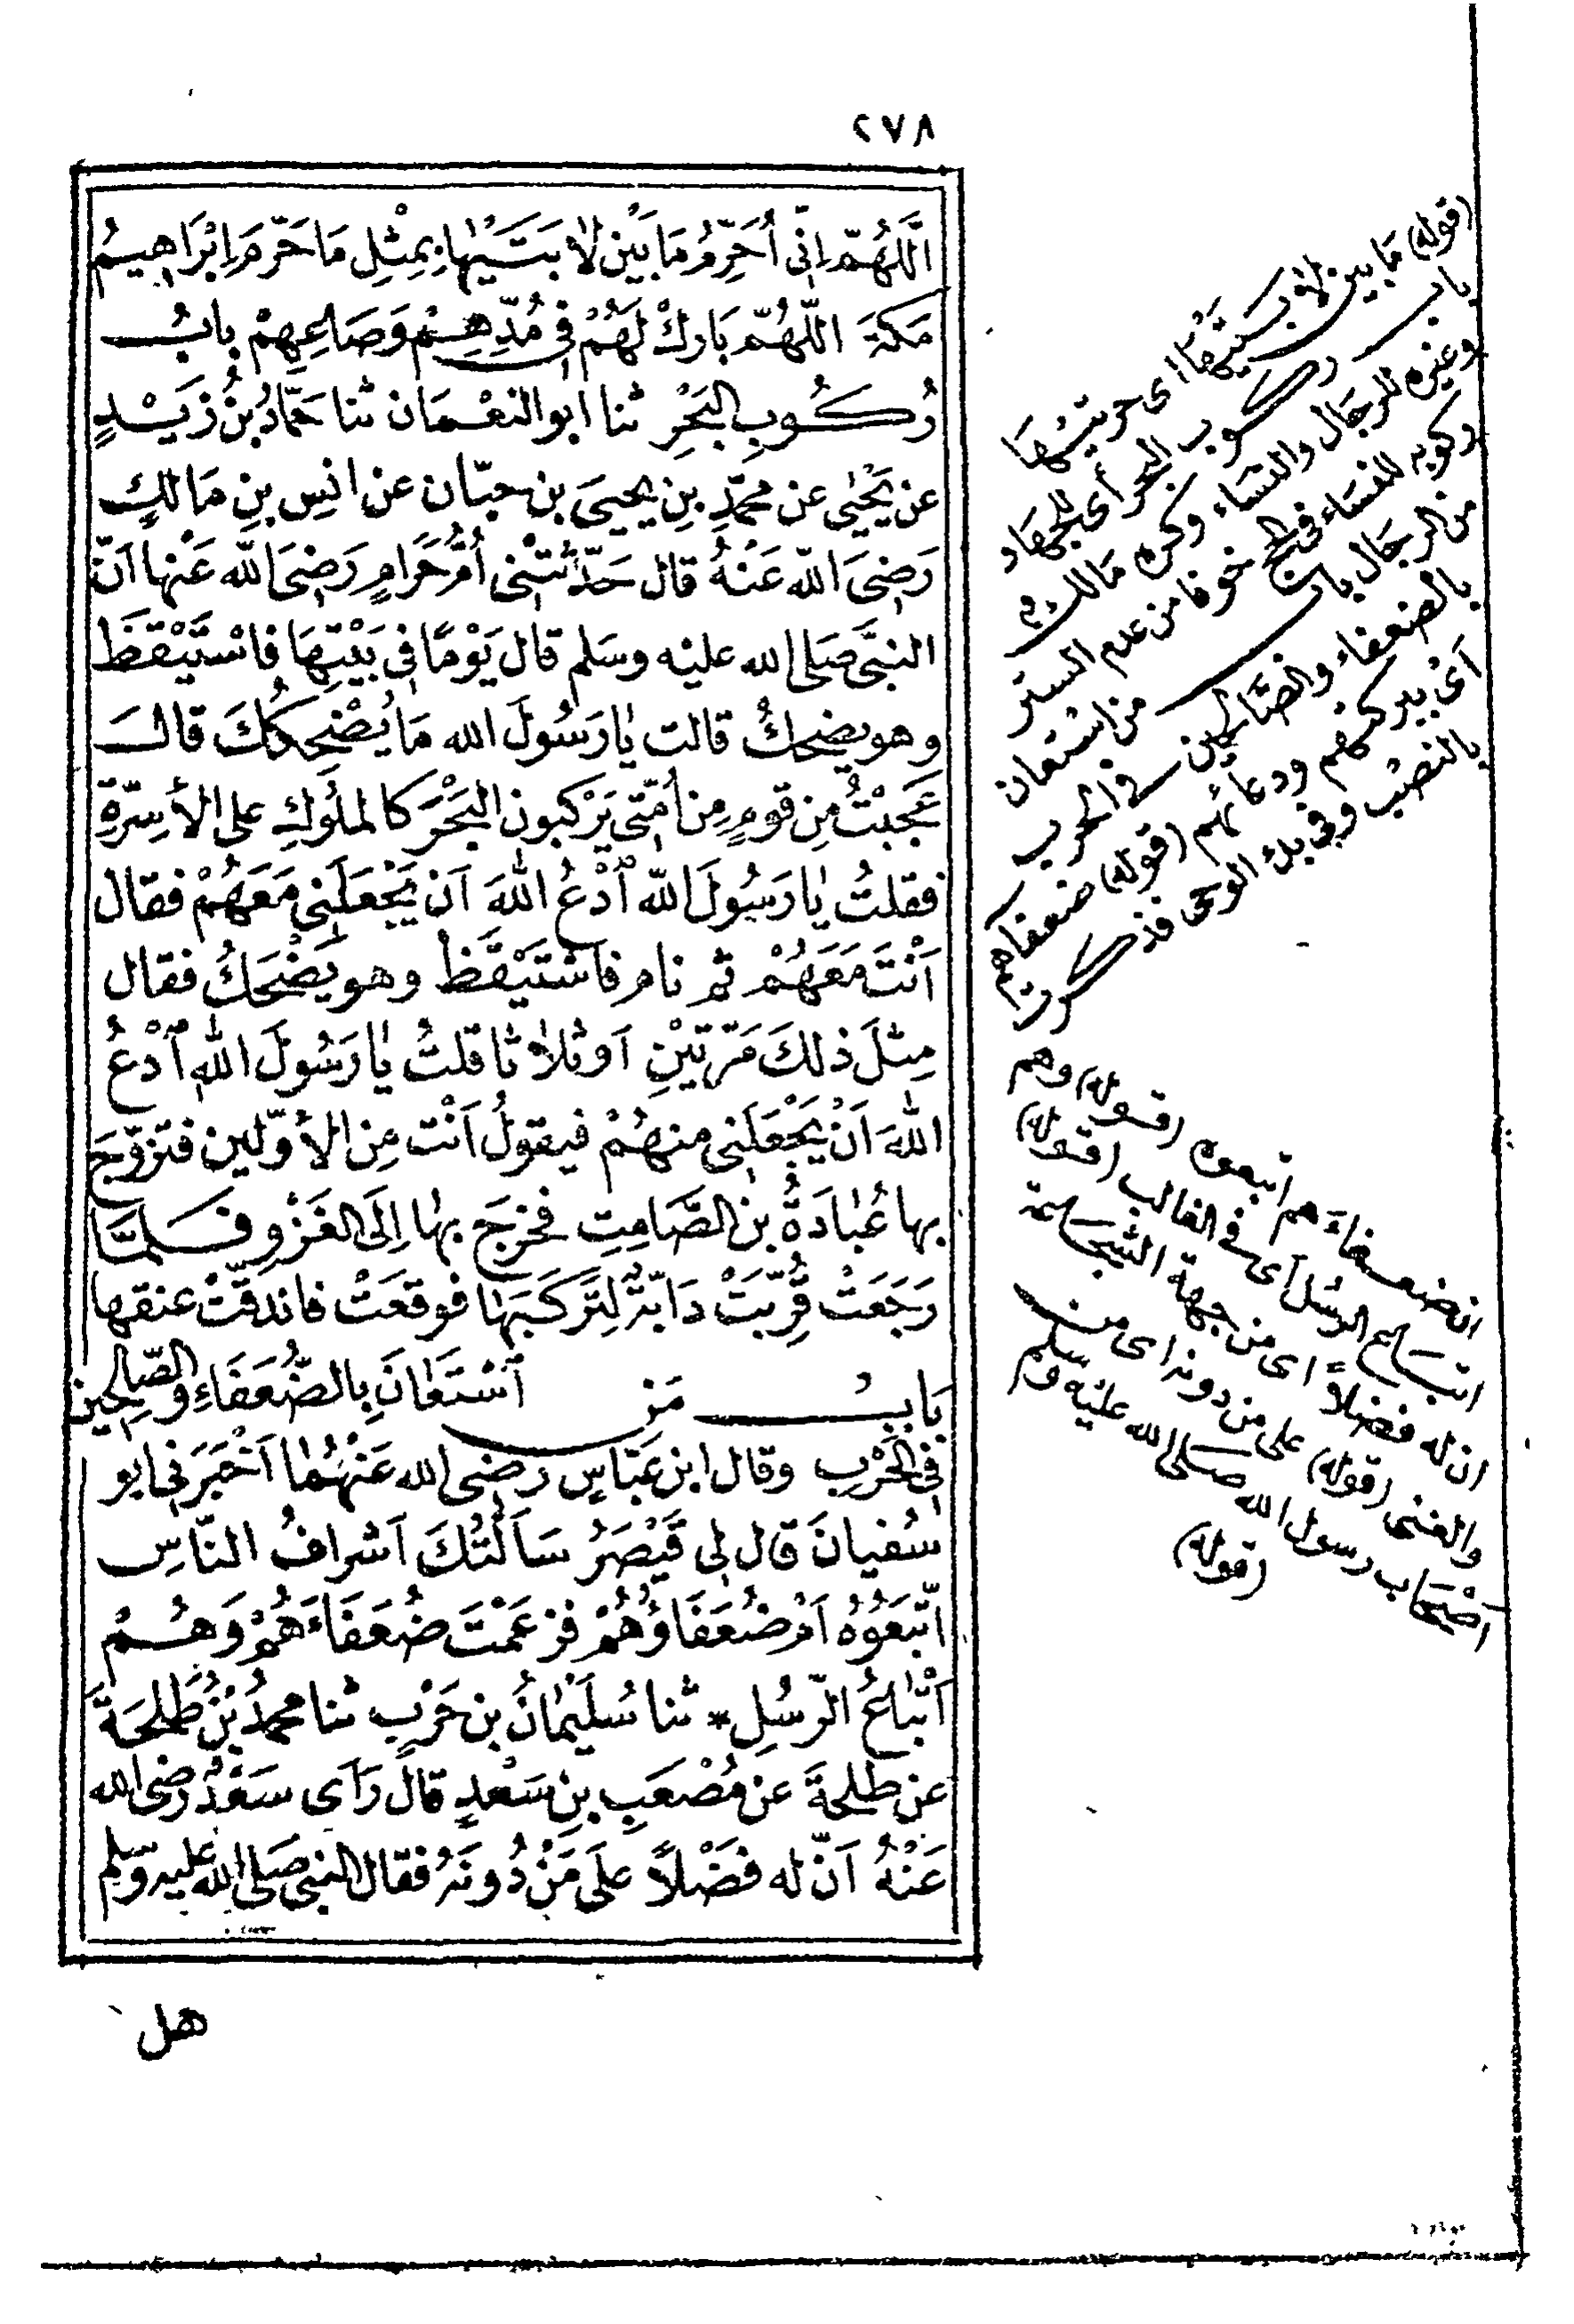 ٢٧٨
اَللّٰهُمَّ اِنِّى أُحَرِّمُ مَا بَيْنَ لَابَتَيْهَا بِمِثْلِ مَا حَرَّمَ اِبْرَاهِيمُ
مَكَّةَ اللّٰهُمَّ بَارِكْ لَهُمْ فِى مُدِّهِمْ وَصَاعِهِمْ بابُ
رُكُوبِ البَحْرِ ثنا ابو النُّعْمَان ثنا حَمَّادُ بنُ زَيْدٍ
عن يَحْيٰى عن محمّدِ بنِ يحيىَ بن حبّان عن انسِ بنِ مَالكٍ
رَضِىَ اللّٰه عَنْهُ قال حَدَّثَتْنِى اُمُّ حَرَامٍ رَضِىَ اللّٰه عَنْها اَنَّ
النبَّى صَلى الله عليْه وسَلم قال يَوْمًا فِى بَيْتِهَا فاسْتَيْقَظَ
وهو يضحكُ قالت يٰا رَسُولَ الله مَا يُضْحِكُكَ قالَ
عَجِبْتُ مِن قومٍ مِن اُمَّتِى يَرْكبون البَحْرَ كالملُوكِ على الأَسِرَّةِ
فقلتُ يٰا رَسُولَ اللّٰه اُدْعُ اللّٰهَ اَن يَجْعَلَنِى مَعَهُمْ فقال
اَنْتَ مَعَهُمْ ثم نام فاسْتَيْقَظَ وهو يَضْحَكُ فقال
مِثْلَ ذلكَ مَرّتيْنِ اَو ثلاثا قلتُ يٰا رَسُولَ اللّٰه اُدْعُ
اللّٰهَ اَنْ يَجْعَلَنِى منهُمْ فيقولُ اَنْت مِن الأَوّلين فتزوّجَ
بها عُبَادَةُ بنُ الصَّامِتِ فخرَجَ بهٰا اِلَى الغَزْوِ فَلَمَّا
رَجَعَتْ قُرِّبَتْ دَابّةٌ لِتَرْكَبَهٰا فوقعَتْ فاندقّتْ عنقها
بَابُ مَنِ اسْتَعَانَ بِالضُّعَفَاءِ والصّالحِين
فِى الحَرْبِ وقال ابن عَبّاسٍ رضِى الله عَنْهُمٰا اَخْبَرَنِى ابو
سُفيانَ قال لِى قَيْصَرُ سَاَلْتُكَ اَشرافُ النّاسِ
اتّبَعُوْهُ اَمْ ضُعَفَاؤُهُمْ فزعَمْتَ ضُعَفَاءَهُمْ وَهُمْ
اَتْبَاعُ الرّسُلِ * ثنا سُلَيْمٰانُ بن حَرْبٍ ثنا محمدُ بْنُ طَلحَةَ
عن طلحةَ عن مُصْعَبِ بنِ سَعْدٍ قال رَاَى سَعْدٌ رضى الله
عَنْهُ اَنّ له فضْلاً علَى مَنْ دُونَهُ فقال النبى صَلى الله عليه وسلم
هل
(قوله) مَا بين لابتَيْهَا اى حرتيْهَا
باب ركوب البحر أى للجهاد
وغيره للرجَال والنسَاء وكره مَالك
ركوبه للنسَاء فى الحج خوفا من عدم الستر
من الرجَال باب من استعان
بالضعفاء والصّالحين فى الحرب
أى ببركتهم ودعائهم (قوله) ضعفاءهم
بالنصب وفى بدء الوحى فذكرت
ان ضعفاءَهم اتبعوه (قوله) وهم
اتباع الرسُل أى فى الغالب (قوله)
ان له فضلاً اى من جهة الشجَاعة
والغنى (قوله) على من دونه اى من
اصْحَاب رسول الله صلى الله عليه وسلم
(قوله)